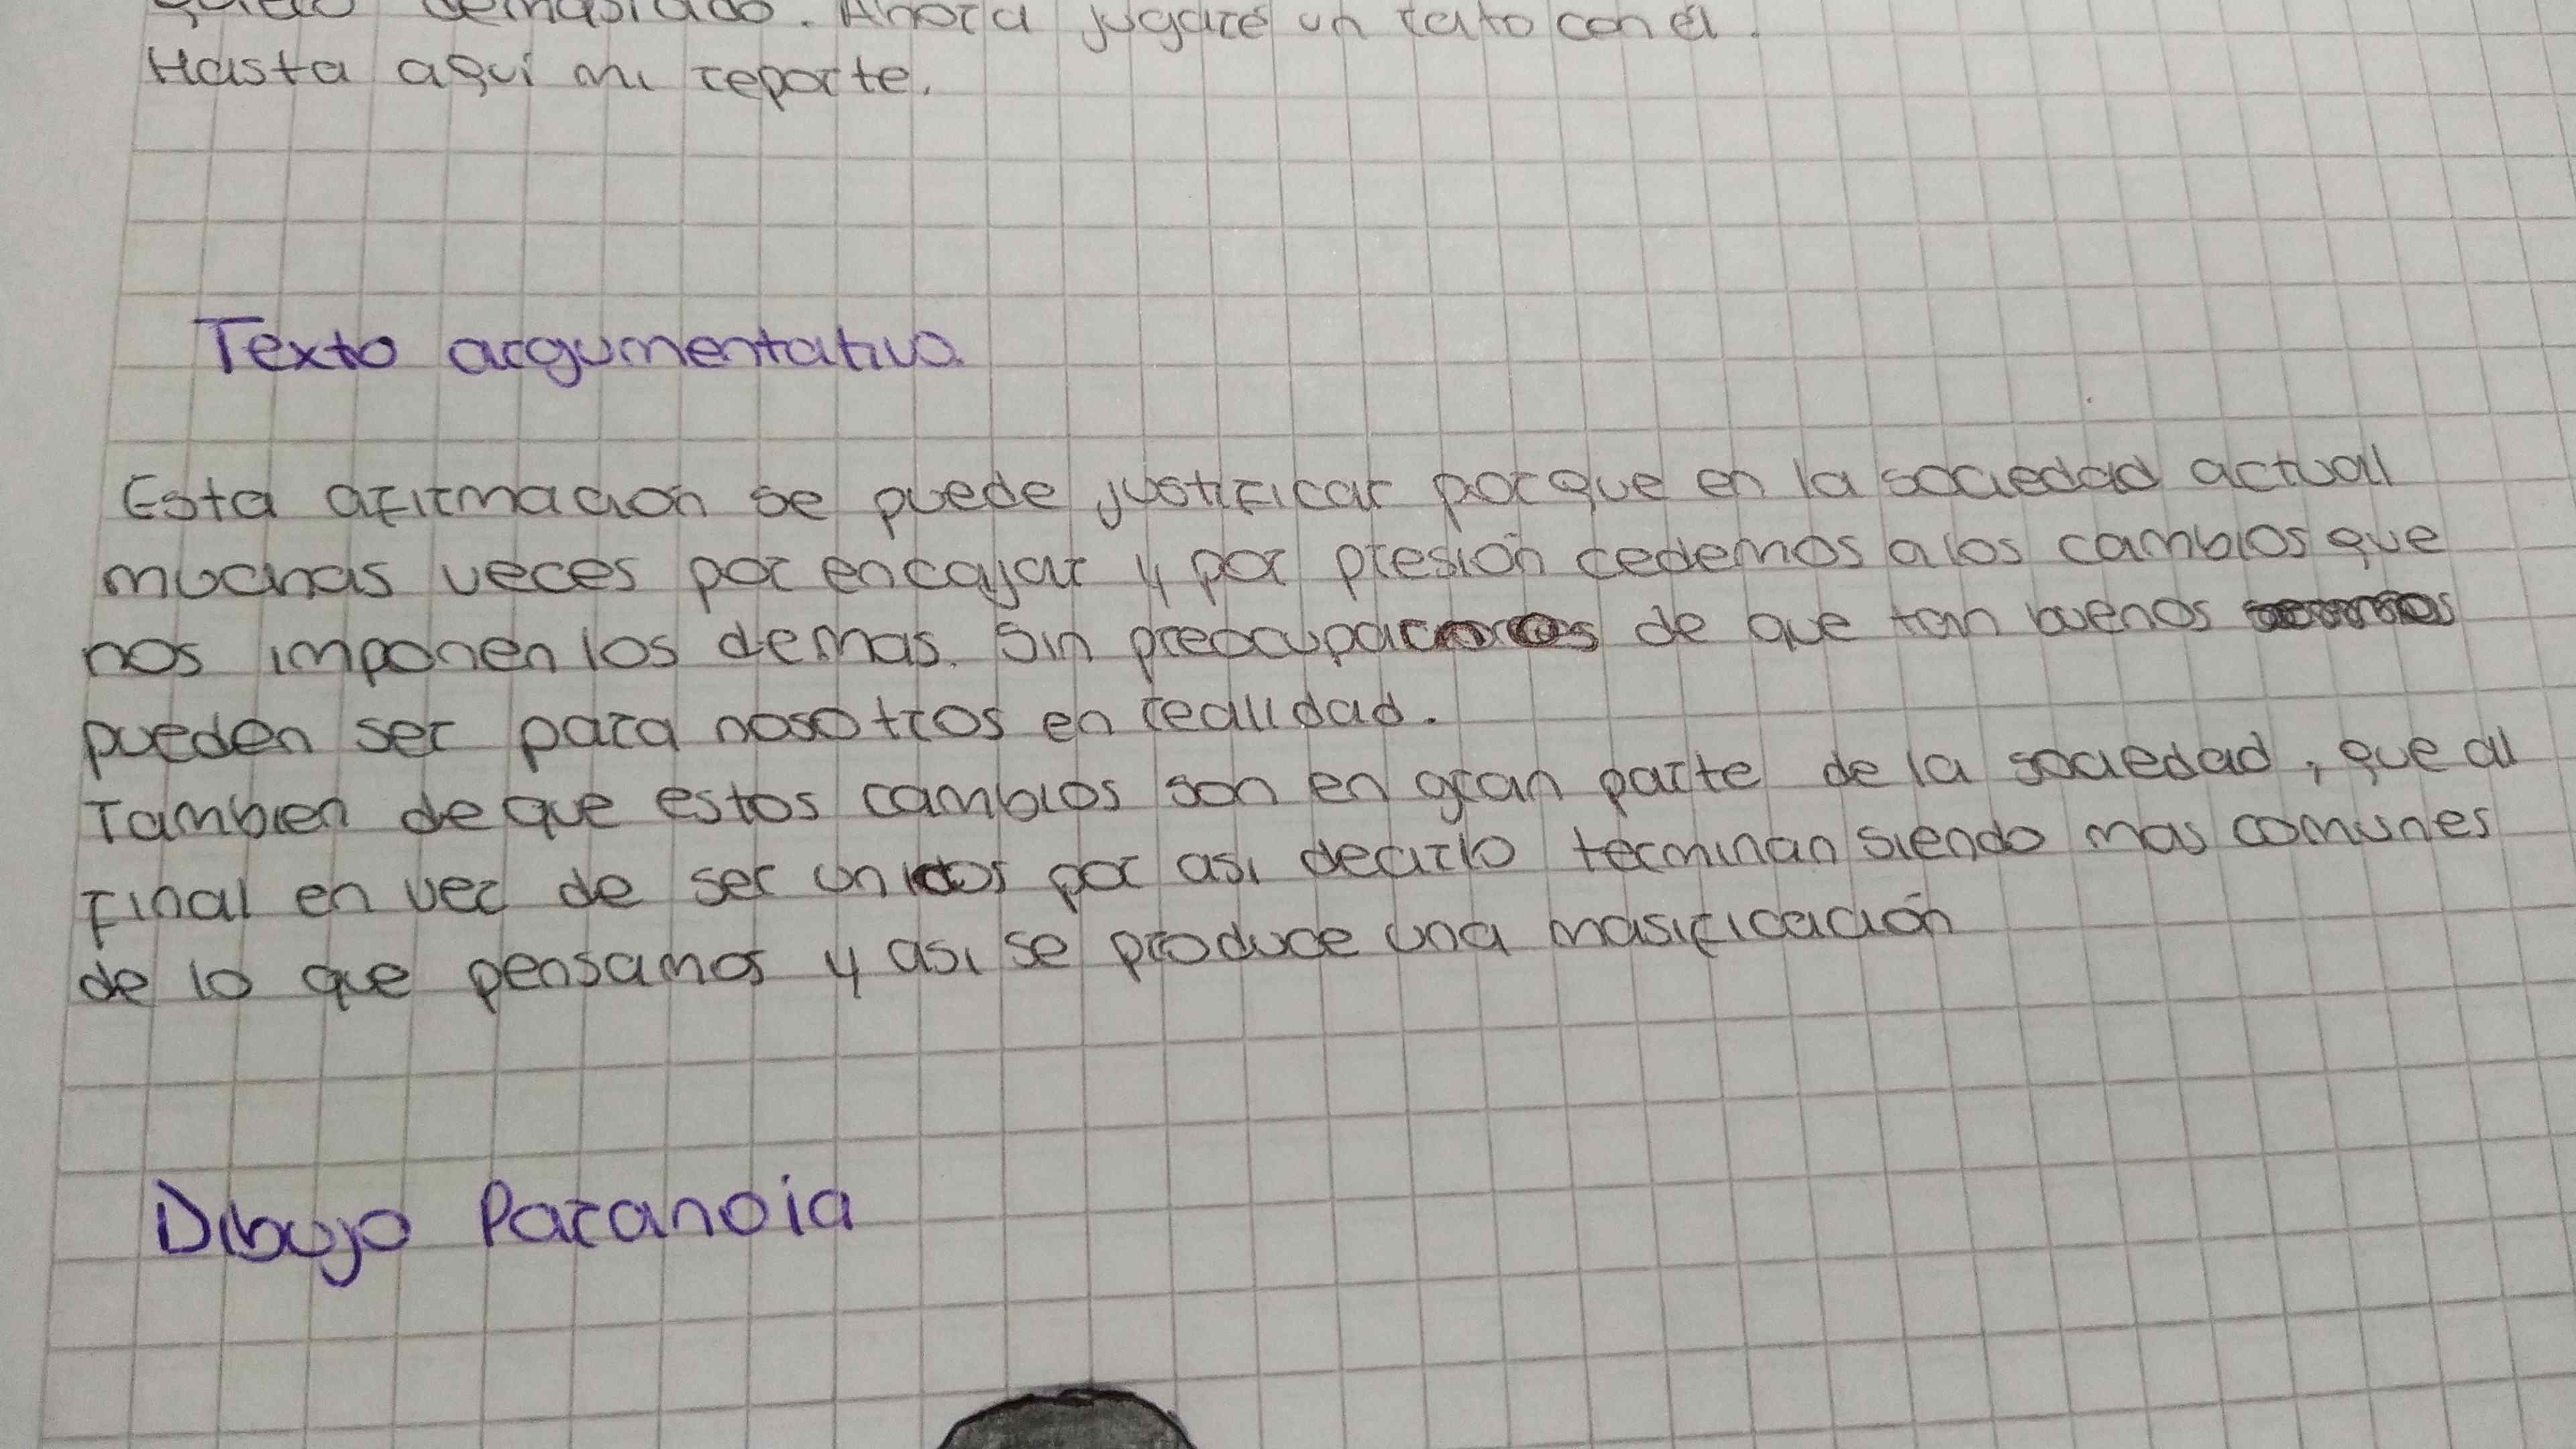 quiero demasiado. Ahora jugaré un rato con él.
Hasta aquí mi reporte.
Texto argumentativo
Esta afirmación se puede justificar porque en la sociedad actual
muchas veces por encajar y por presión cedemos a los cambios que
nos imponen los demas. Sin preocuparnos de que tan buenos
pueden ser para nosotros en realidad.
Tambien de que estos cambios son en gran parte de la sociedad, que al
final en vez de ser unicos por asi decirlo terminan siendo mas comunes
de lo que pensamos y asi se produce una masificación
Dibujo Paranoia